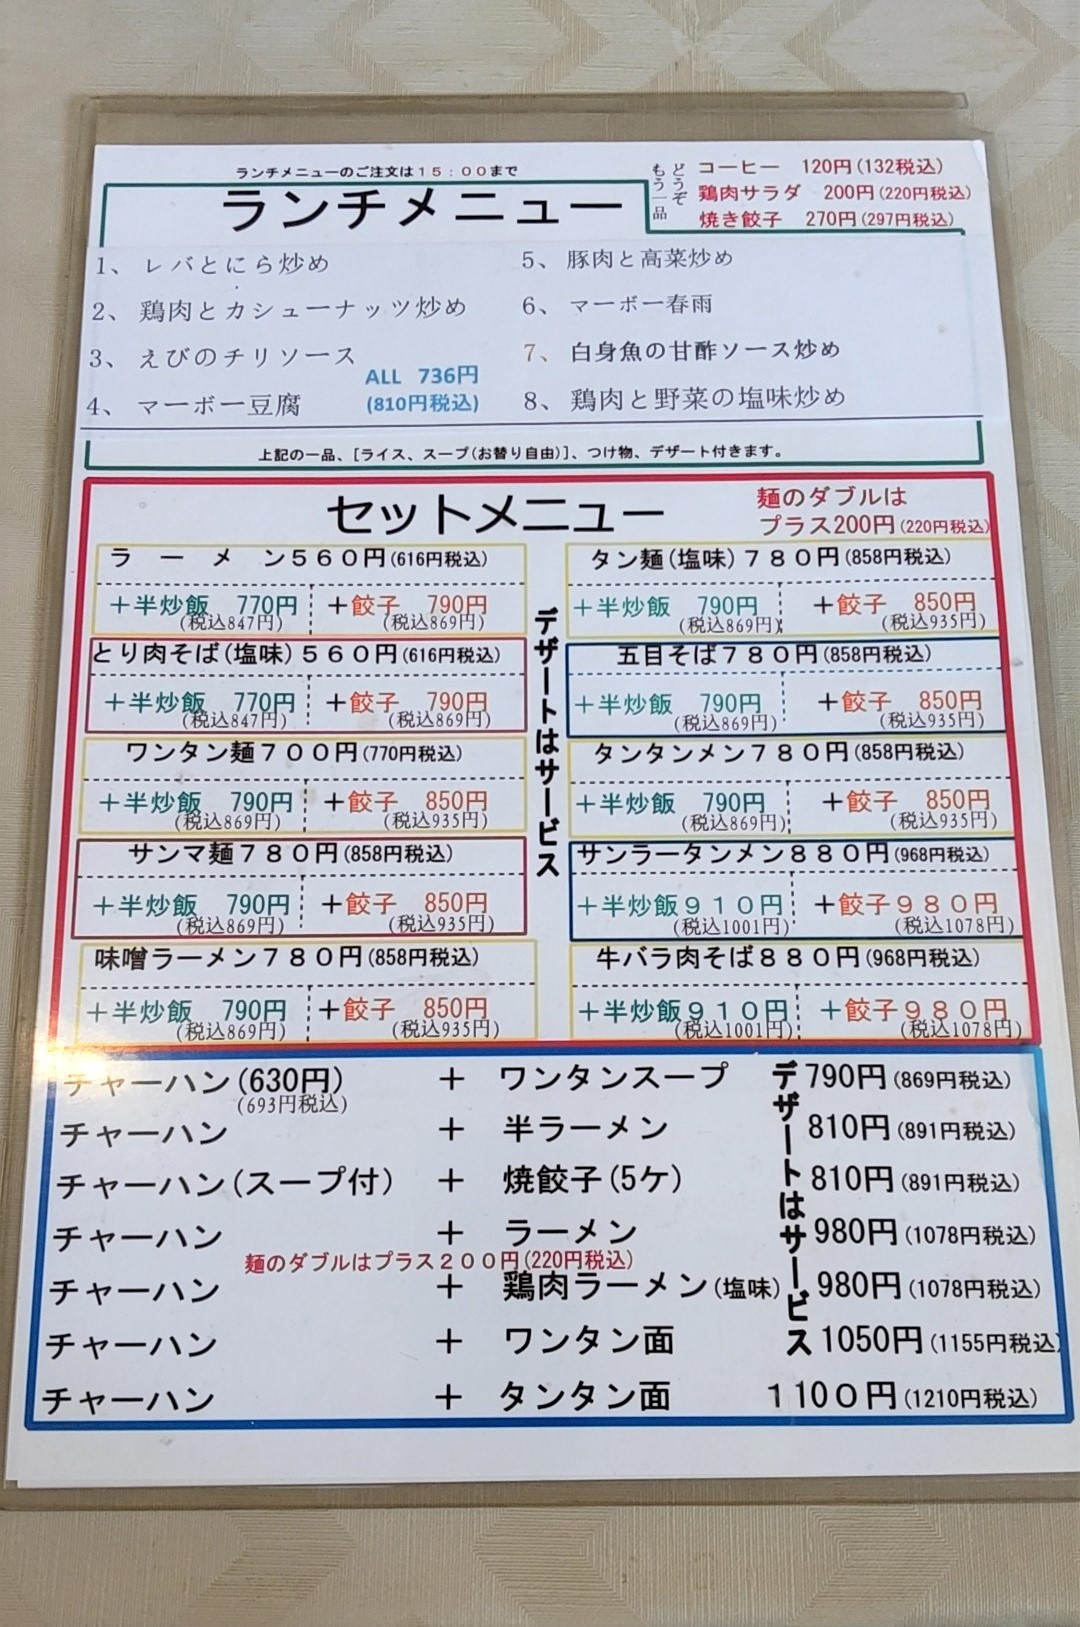 ランチメニューのご注文は15:00まで
ランチメニュー
どうぞ
もう一品
コーヒー 120円(132税込)
鶏肉サラダ 200円(220円税込)
焼き餃子 270円(297円税込)
1、 レバとにら炒め
2、 鶏肉とカシューナッツ炒め
3、 えびのチリソース
4、 マーボー豆腐
ALL 736円
(810円税込)
5、 豚肉と高菜炒め
6、 マーボー春雨
7、 白身魚の甘酢ソース炒め
8、 鶏肉と野菜の塩味炒め
上記の一品、[ライス、スープ(お替り自由)]、つけ物、デザート付きます。
セットメニュー
麺のダブルは
プラス200円(220円税込)
ラーメン560円(616円税込)
+半炒飯 770円 +餃子 790円
(税込847円) (税込869円)
とり肉そば(塩味)560円(616円税込)
+半炒飯 770円 +餃子 790円
(税込847円) (税込869円)
ワンタン麺700円(770円税込)
+半炒飯 790円 +餃子 850円
(税込869円) (税込935円)
サンマ麺780円(858円税込)
+半炒飯 790円 +餃子 850円
(税込869円) (税込935円)
味噌ラーメン780円(858円税込)
+半炒飯 790円 +餃子 850円
(税込869円) (税込935円)
デザートはサービス
タン麺(塩味)780円(858円税込)
+半炒飯 790円 +餃子 850円
(税込869円) (税込935円)
五目そば780円(858円税込)
+半炒飯 790円 +餃子 850円
(税込869円) (税込935円)
タンタンメン780円(858円税込)
+半炒飯 790円 +餃子 850円
(税込869円) (税込935円)
サンラータンメン880円(968円税込)
+半炒飯910円 +餃子980円
(税込1001円) (税込1078円)
牛バラ肉そば880円(968円税込)
+半炒飯910円 +餃子980円
(税込1001円) (税込1078円)
チャーハン(630円) + ワンタンスープ 790円(869円税込)
(693円税込)
チャーハン + 半ラーメン 810円(891円税込)
チャーハン(スープ付) + 焼餃子(5ケ) 810円(891円税込)
チャーハン + ラーメン 980円(1078円税込)
麺のダブルはプラス200円(220円税込)
チャーハン + 鶏肉ラーメン(塩味) 980円(1078円税込)
チャーハン + ワンタン面 1050円(1155円税込)
チャーハン + タンタン面 1100円(1210円税込)
デザートはサービス